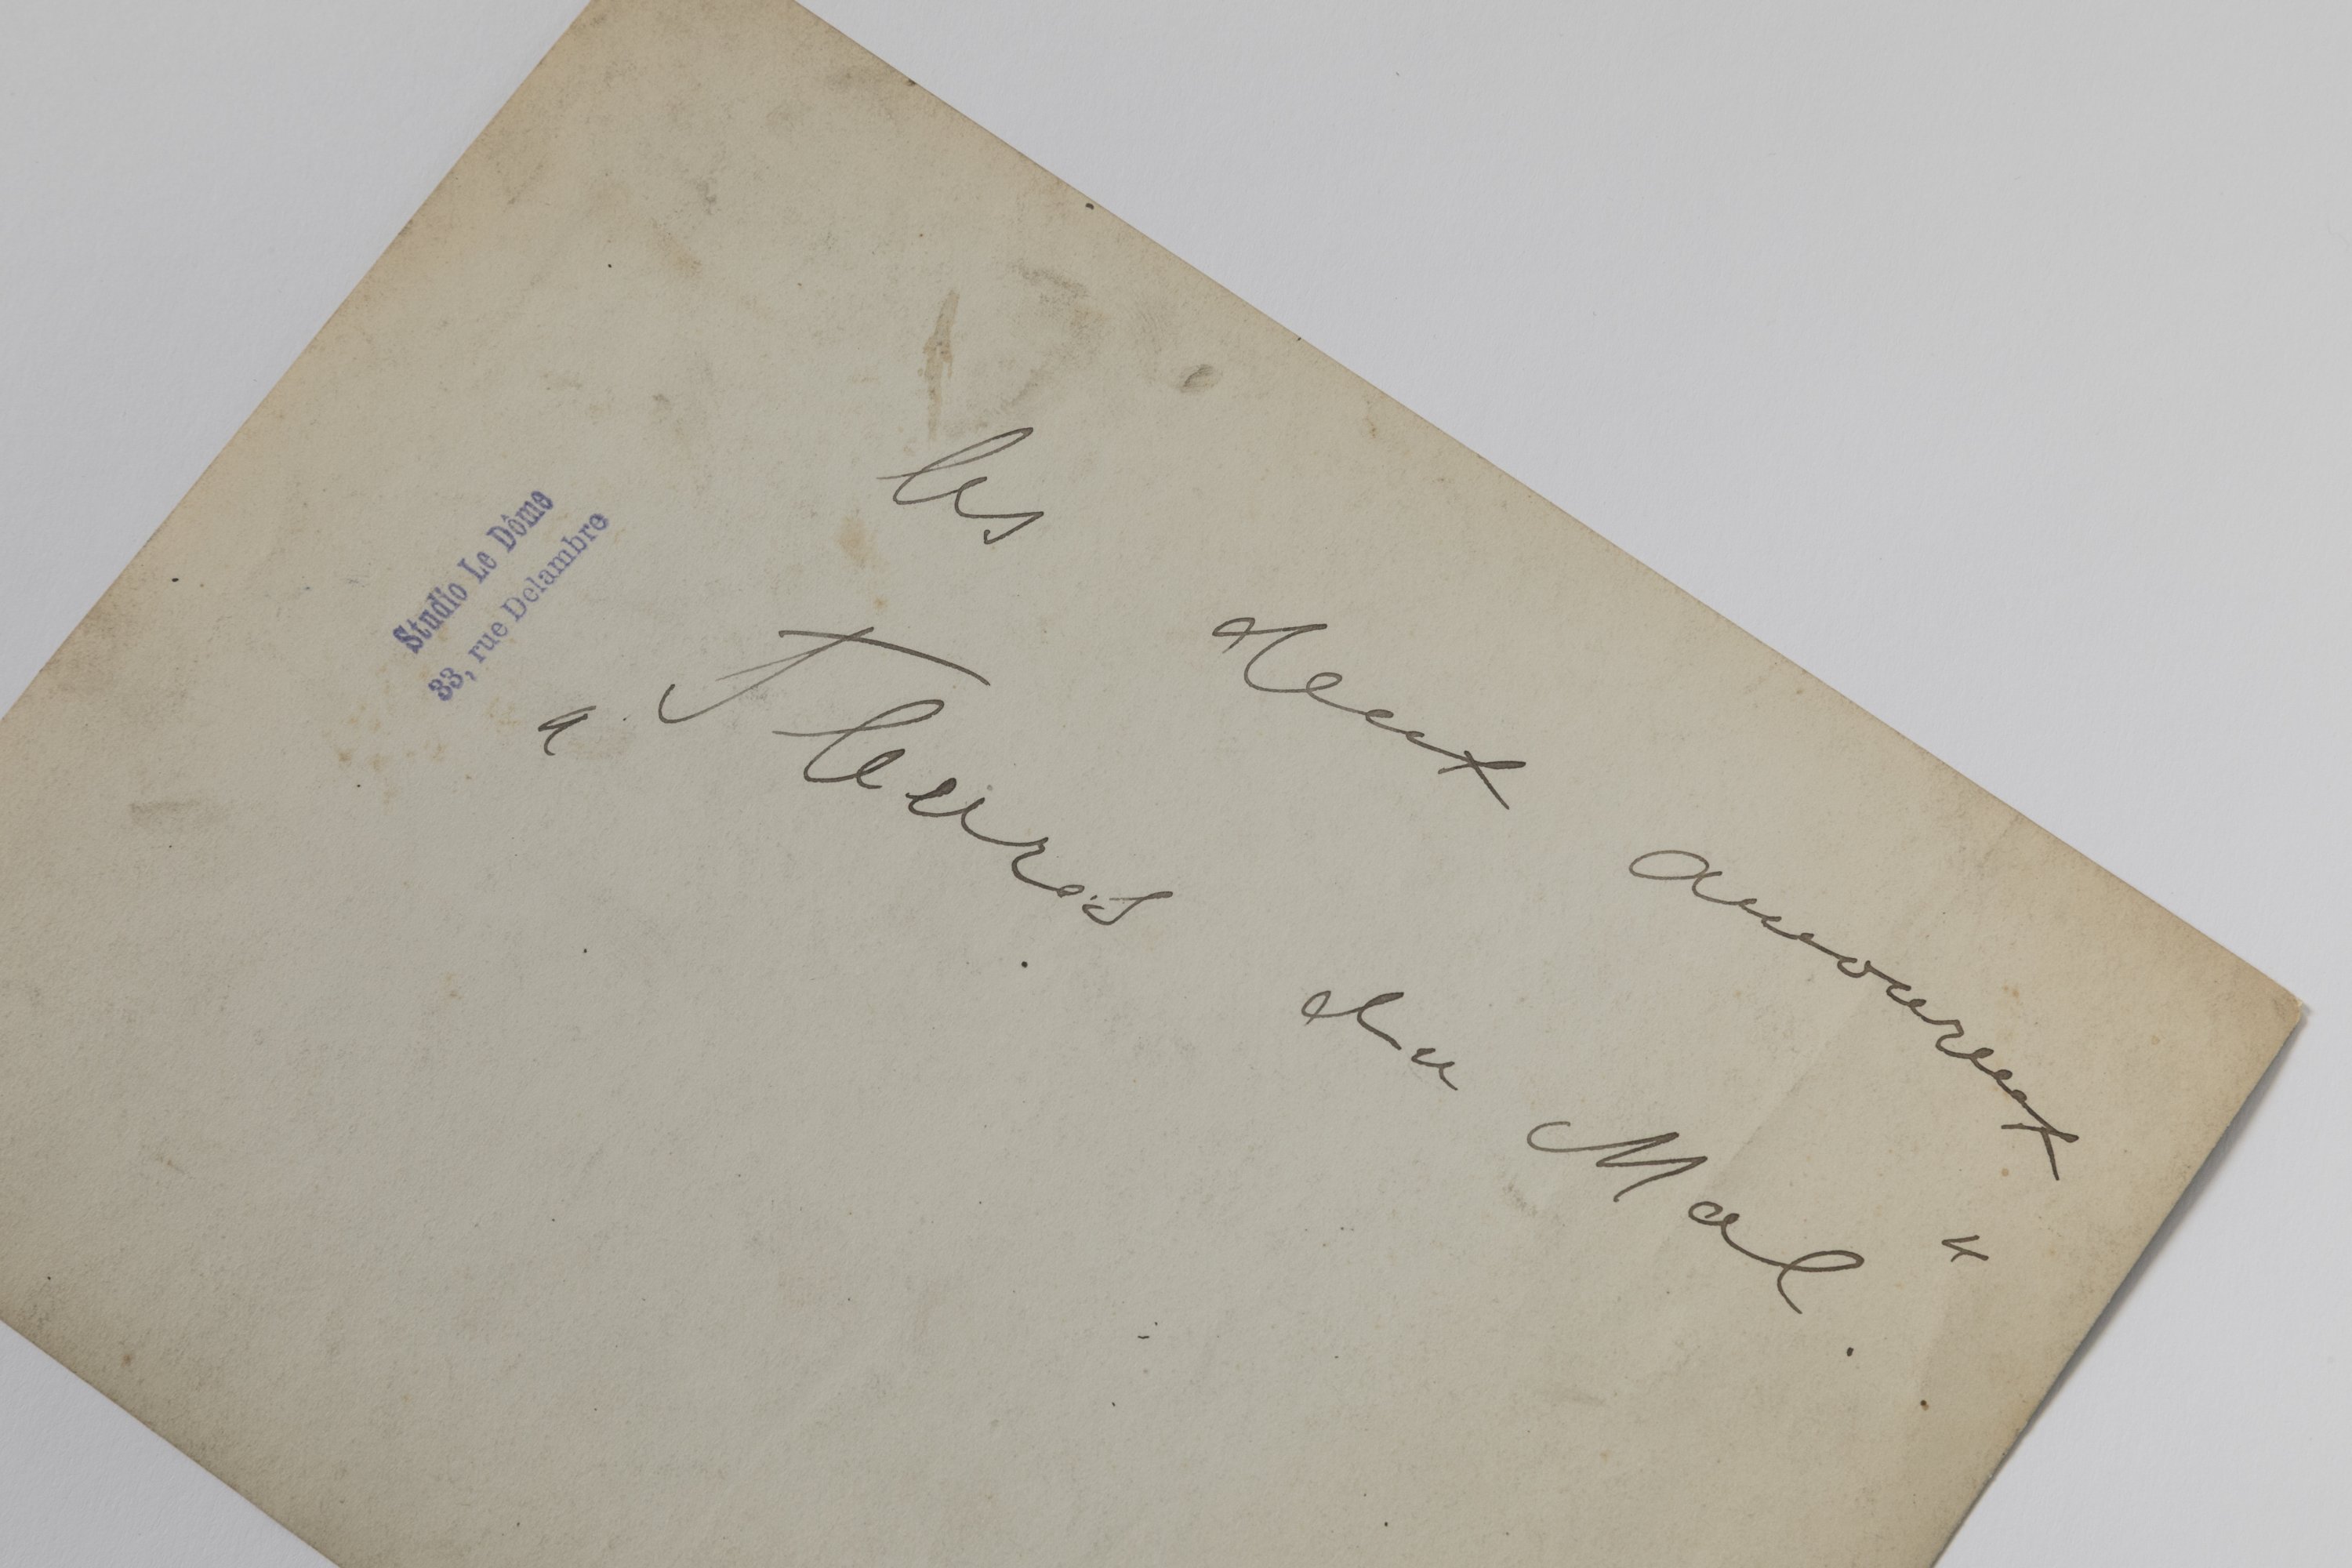 Studio Le Dôme
33, rue Delambre
les deux amoureux
"Fleurs du Mal."